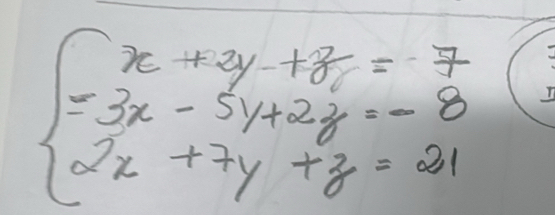 x + 2y + z = 7
= 3x - 5y + 2z = - 8
2x + 7y + z = 21